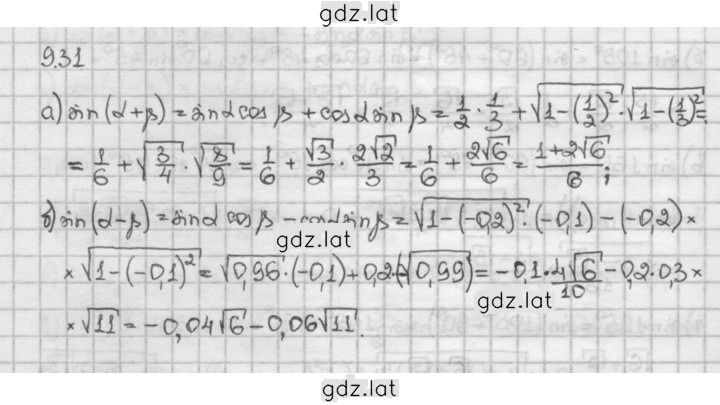 gdz.lat
9.31
а) sin(α+β) = sinα cosβ + cosα sinβ = 1/2 · 1/3 + √(1-(1/2)²) · √(1-(1/3)²) =
= 1/6 + √(3/4) · √(8/9) = 1/6 + √3/2 · 2√2/3 = 1/6 + 2√6/6 = (1+2√6)/6;
б) sin(α-β) = sinα cosβ - cosα sinβ = √(1-(-0,2)²) · (-0,1) - (-0,2) ×
gdz.lat
× √(1-(-0,1)²) = √0,96 · (-0,1) + 0,2 · (-√0,99) = -0,1 · 4√6/10 - 0,2 · 0,3 ×
gdz.lat
× √11 = -0,04√6 - 0,06√11.
gdz.lat